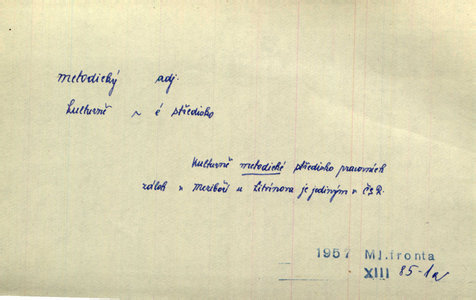 metodický adj.
kulturně ~ é středisko
kulturně metodické středisko pracovních
záloh v Meziboří u Litvínova je jediným v ČSR.
1957 Ml.fronta
XIII 85-1a